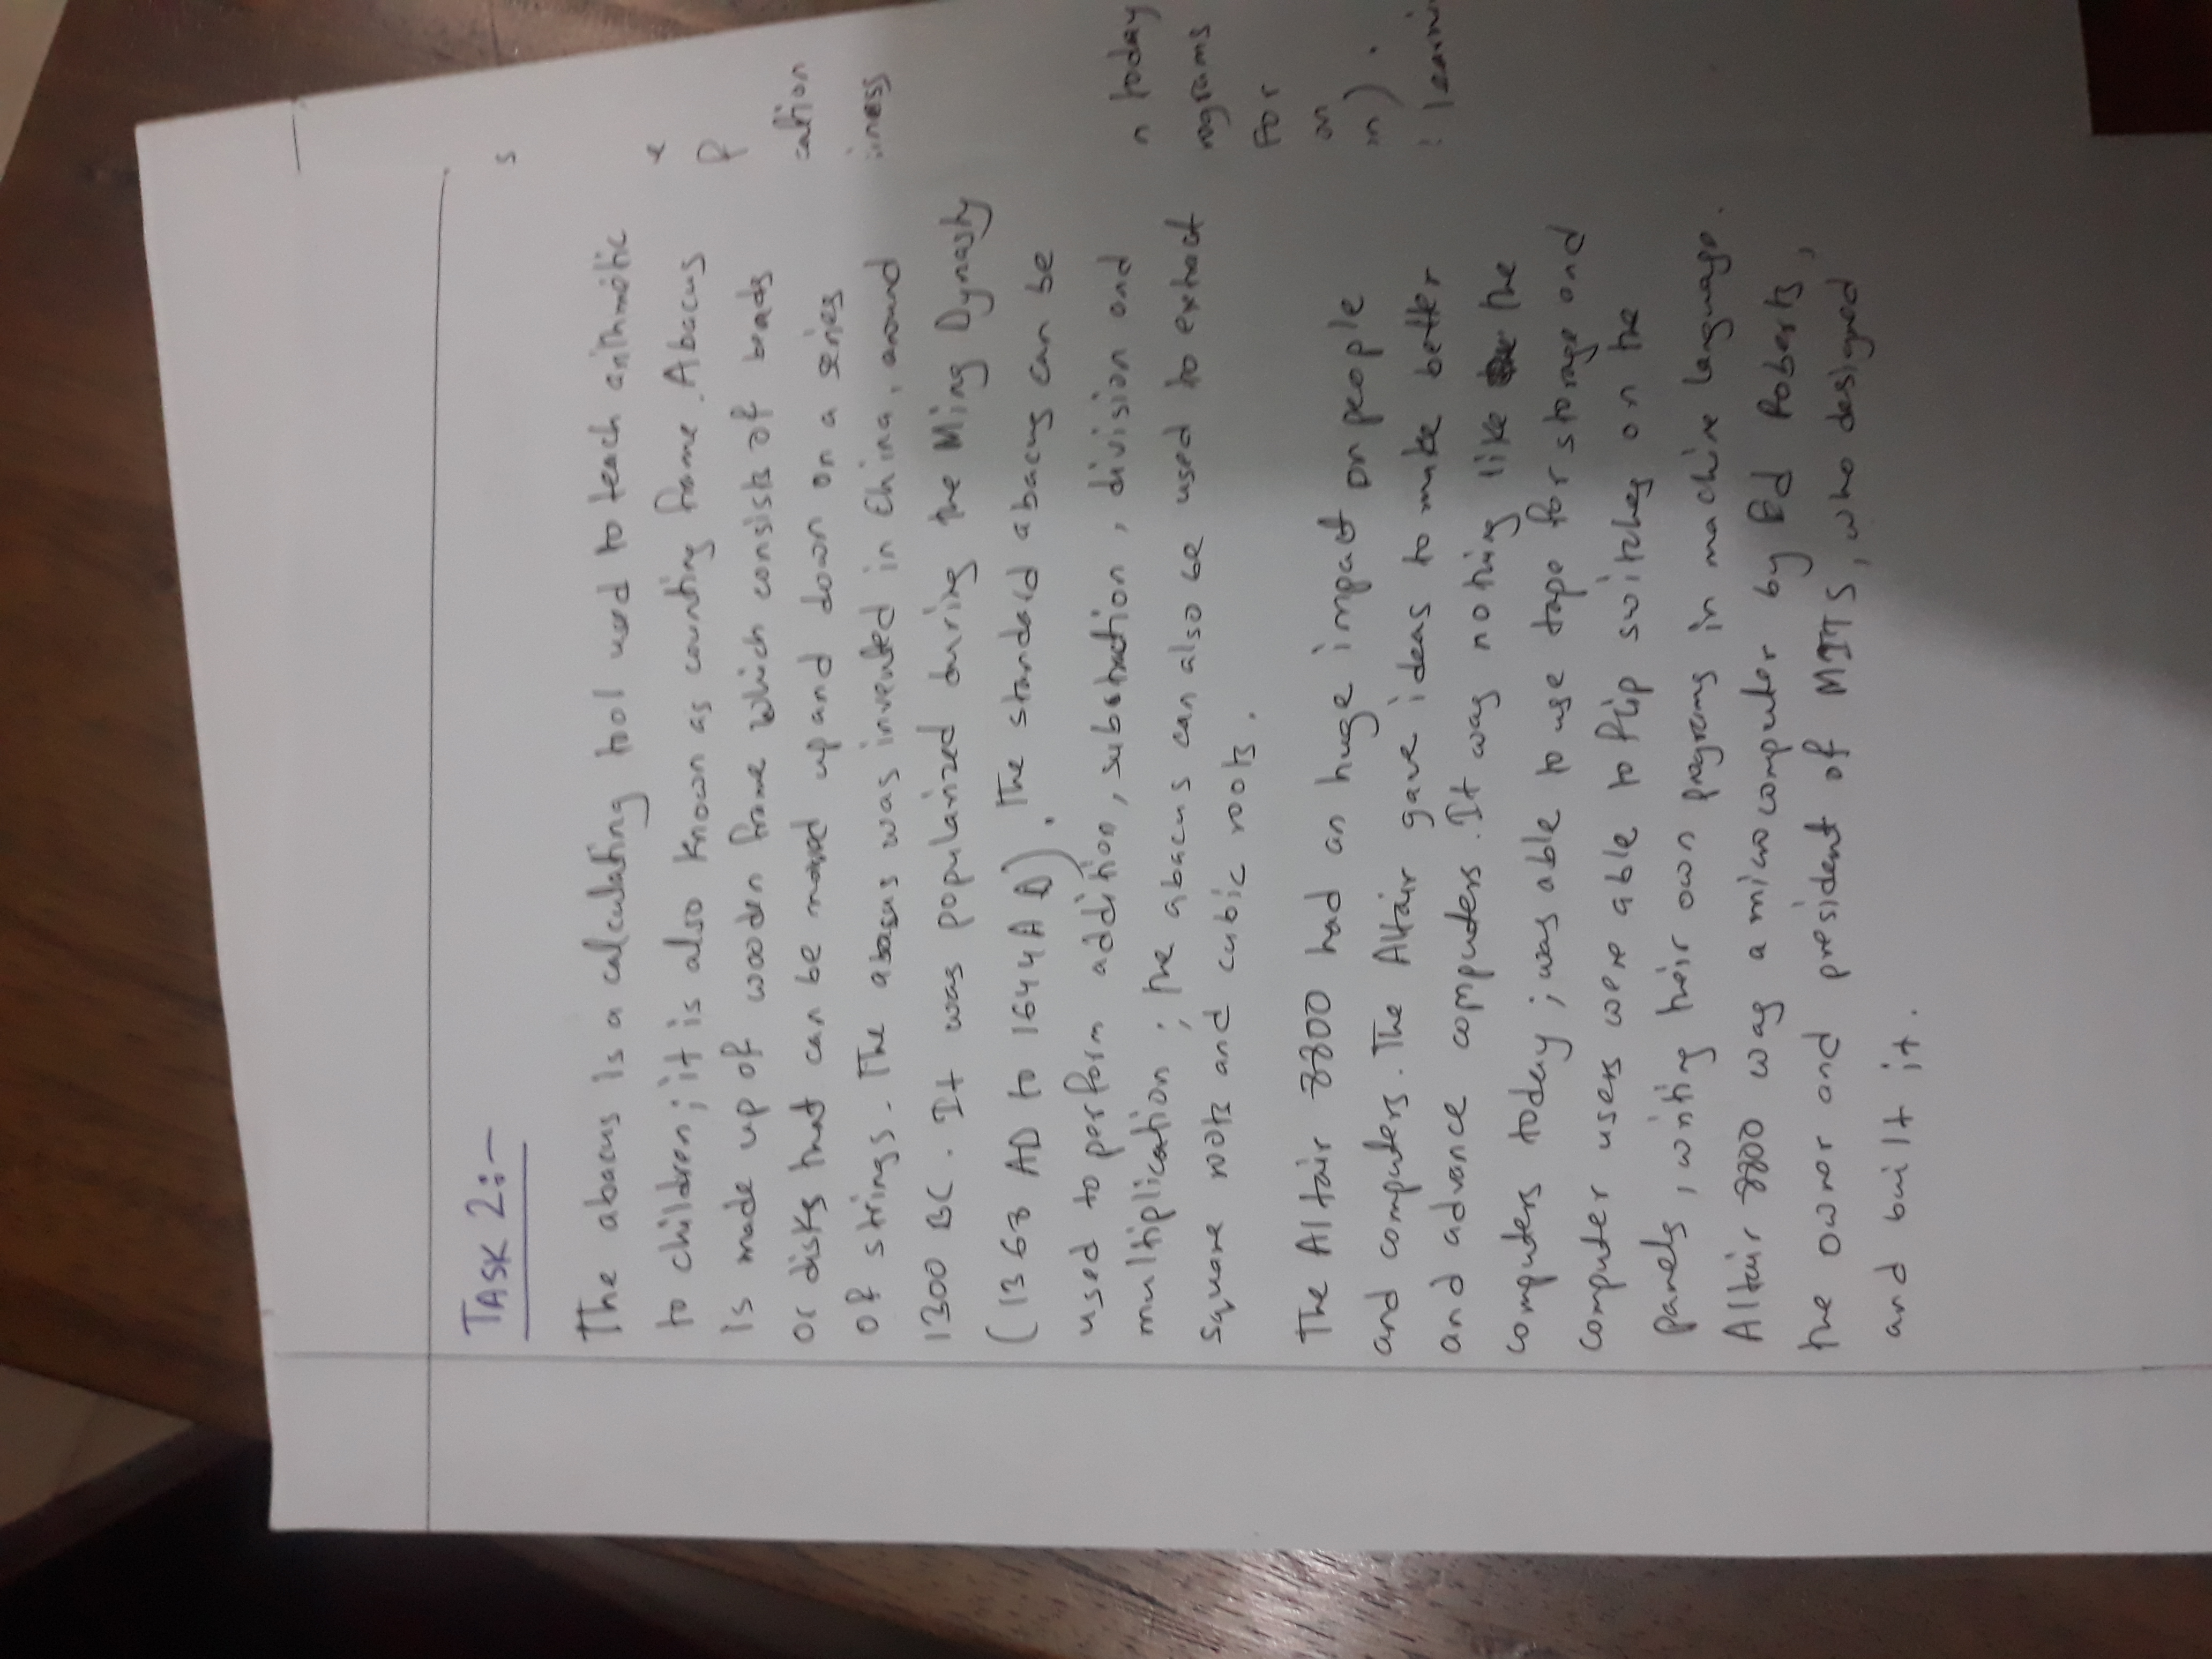 TASK 2:-
The abacus is a calculating tool used to teach arithmetic
to children; it is also known as counting frame. Abacus
is made up of wooden frame which consists of beads
or disks that can be moved up and down on a series
of strings. The abacus was invented in China, around
1300 BC. It was popularized during the Ming Dynasty
(1368 AD to 1644 AD). The standard abacus can be
used to perform addition, substraction, division and
multiplication; the abacus can also be used to extract
square roots and cubic roots.
The Altair 8800 had an huge impact on people
and computers. The Altair gave ideas to make better
and advance computers. It was nothing like the
computers today; was able to use tape for storage and
computer users were able to flip switches on the
panels, writing their own programs in machine language.
Altair 8800 was a microcomputer by Ed Roberts,
the owner and president of MITS, who designed
and built it.
s
e
f
cation
iness
n today
rograms
For
on
in).
learni